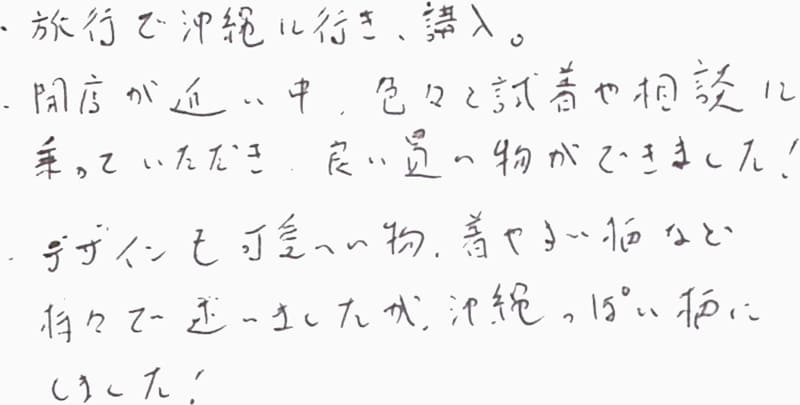 ・旅行で沖縄に行き、講入。
・閉店が近い中、色々と試着や相談に
乗っていただき、良い買い物ができました！
・デザインも可愛いい物、着やすい柄など
様々で迷いましたが、沖縄っぽい柄に
しました！